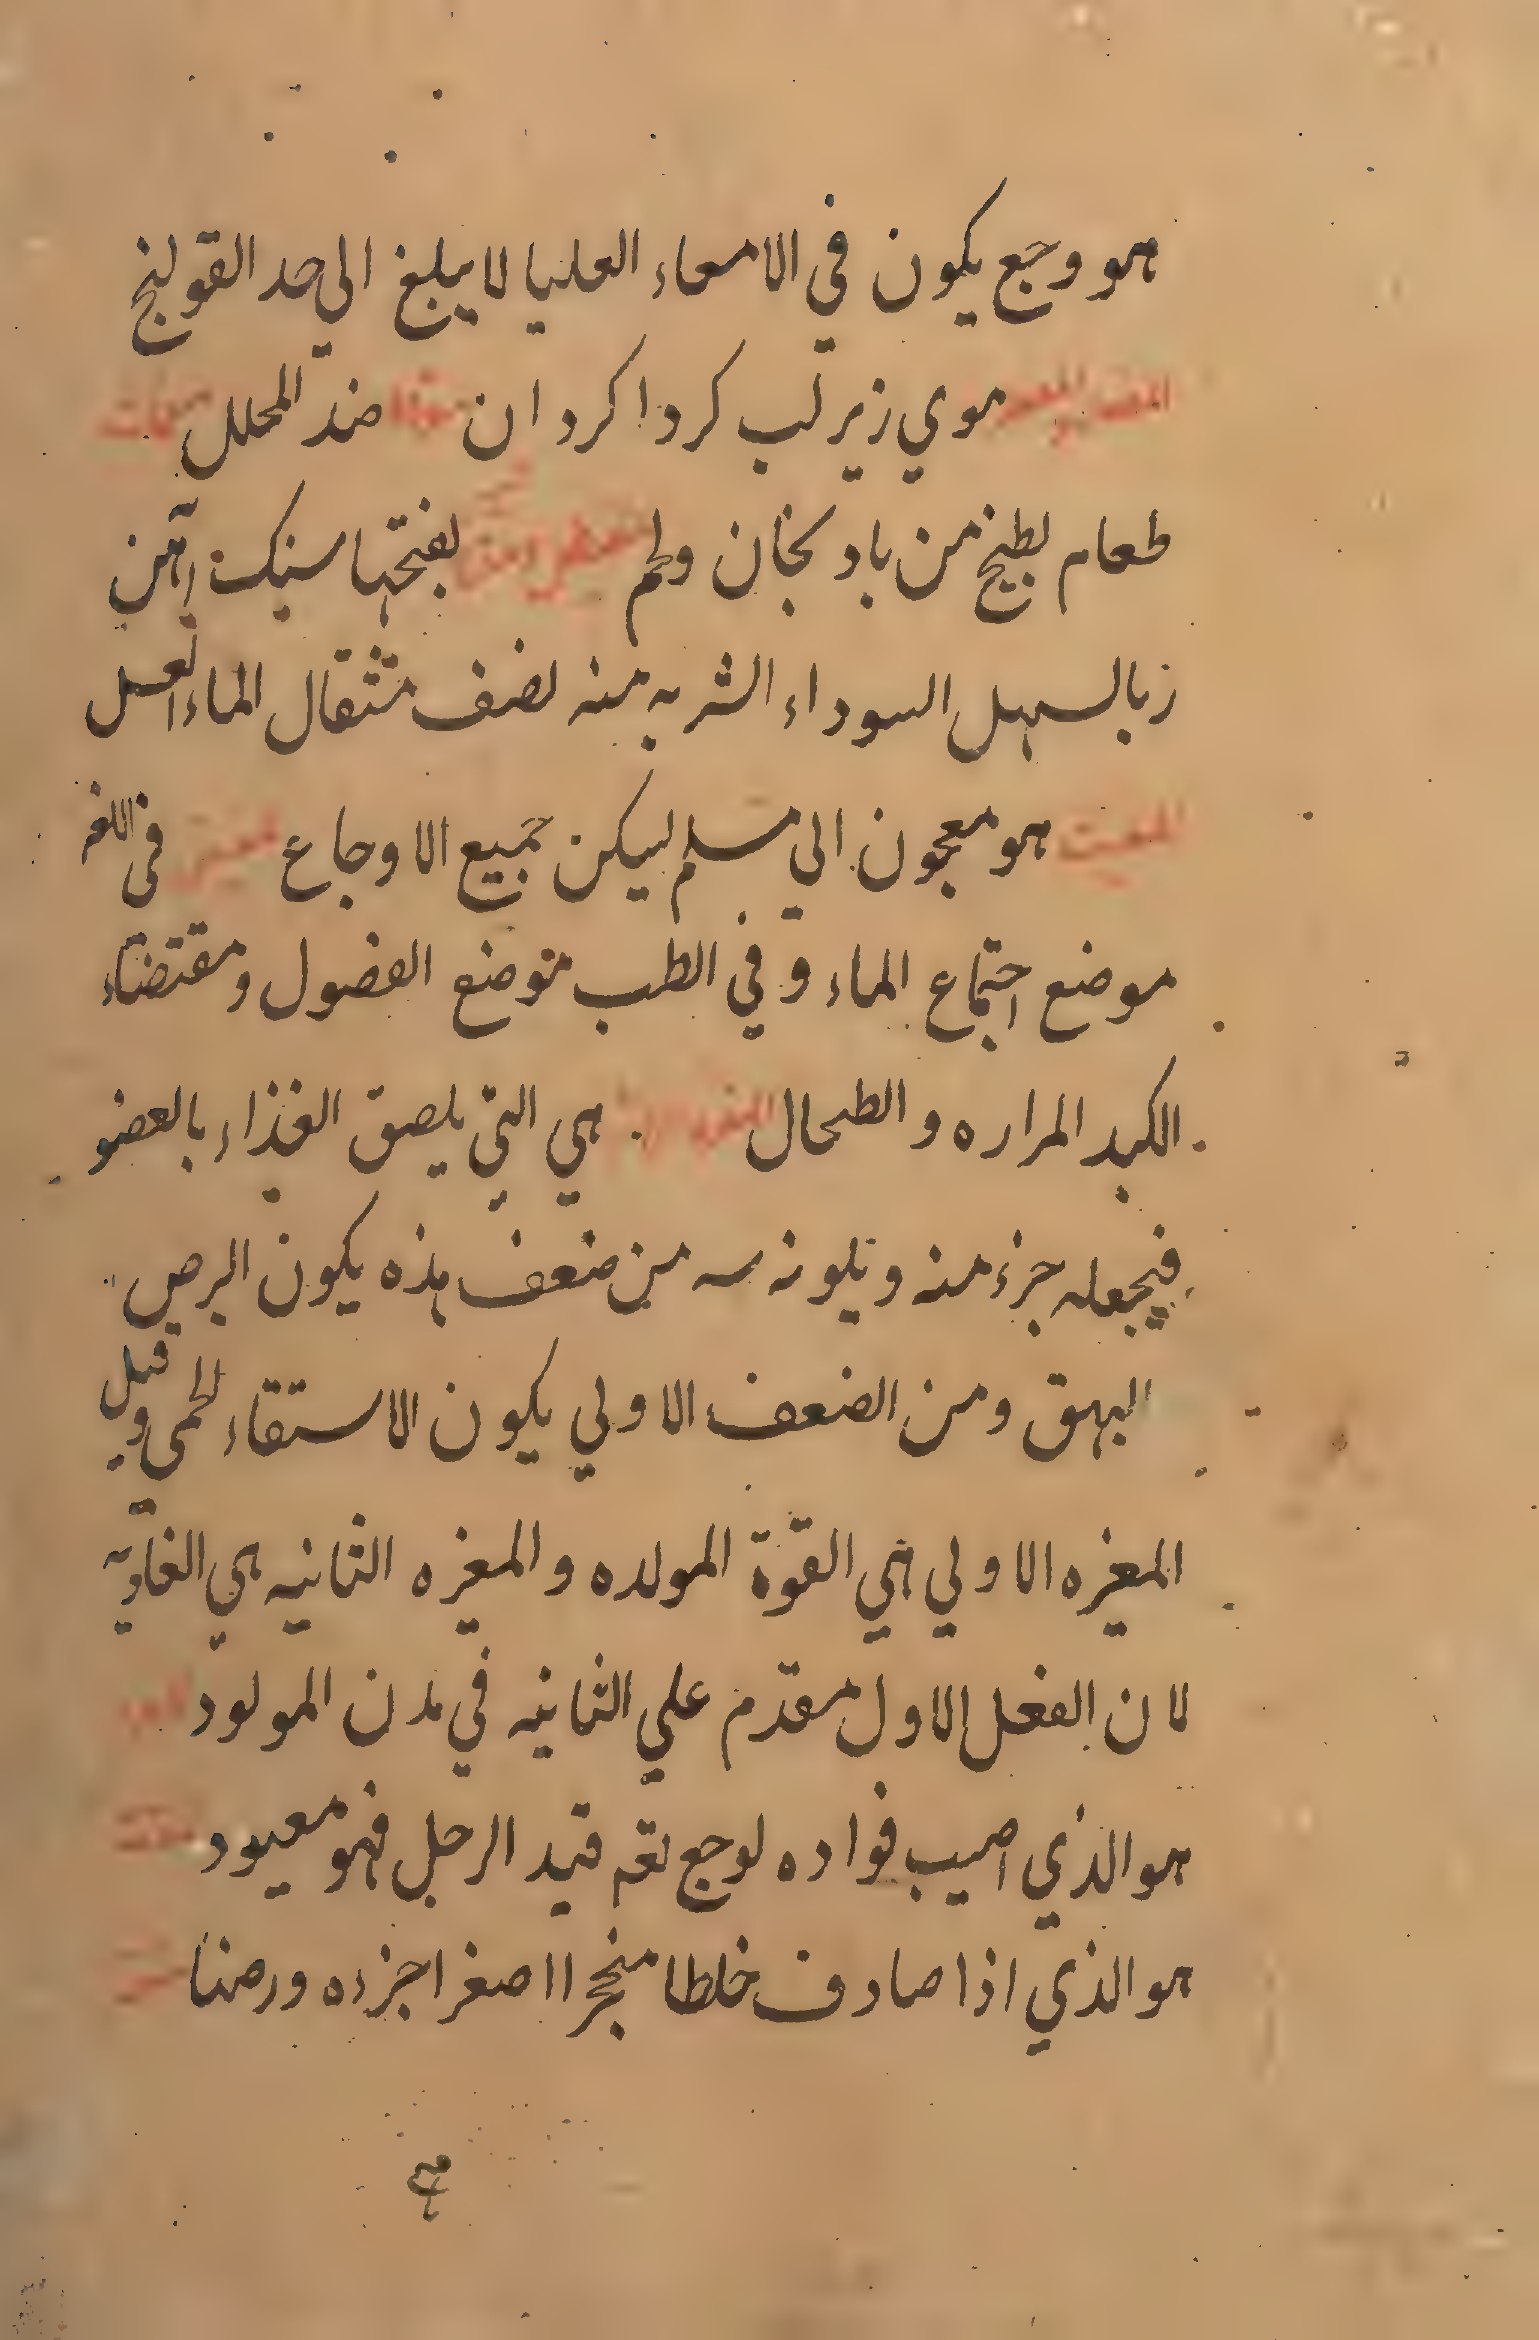 هو وجع يكون في الامعاء العليا لا يبلغ الي حد القولنج
موي زير لب كردا كرد ان ضد المحلل
طعام لطبخ من بادنجان ولحم بفتحها سنك آهن
ربا لسهل السوداء الشربه منه نصف مثقال الماء العسل
هو معجون الي مسلم ليكن جميع الاوجاع في اللغه
موضع اجتماع الماء وفي الطب موضع الفضول ومقتضاء
الكبد المراره والطحال هي التي يلصق الغذاء بالعضو
فيجعله جزء منه ويلونه من ضعف هذه يكون البرص
البهق ومن الضعف الاولي يكون الاستقاء لحمي وقيل
المغيره الاولي هي القوة المولده والمغيره الثانيه هي الغاذيه
لان الفعل الاول مقدم علي الثانيه في بدن المولود
هو الذي اصيب فواده لوجع تقه قيد الرجل فهو معيود
هو الذي اذا صادف خلطا متحجرا اصغر اجزءه ورضنا